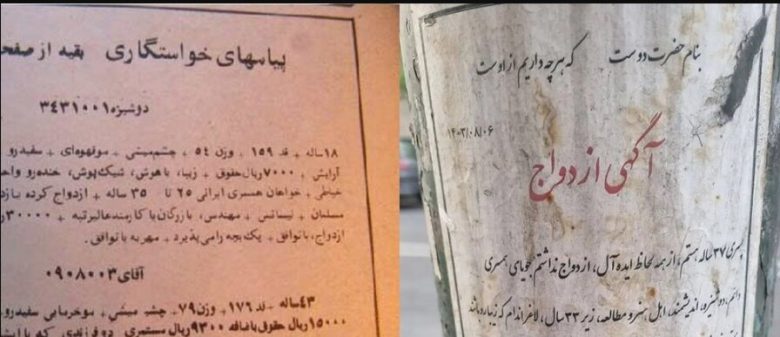 پیامهای خواستگاری بقیه از صفحه
دوشیزه ۳۴۳۱۰۰۱
۱۸ ساله + قد ۱۵۹ + وزن ۵۴ + چشم میشی + موقهوه‌ای + سفیدرو
آرایش + ۷۰۰۰ ریال حقوق + زیبا، باهوش، شیک‌پوش، خنده‌رو
خیاطی + خواهان همسری ایرانی ۲۵ تا ۳۵ ساله + ازدواج کرده یا
مسلمان + لیسانس + مهندس، بازرگان یا کارمند عالیرتبه + ۳۰۰۰۰
ازدواج، با توافق + یک بچه را می‌پذیرد + مهریه با توافق.
آقای ۰۹۰۸۰۰۳
۴۳ ساله + قد ۱۷۶ + وزن ۷۹ + چشم میشی + موخرمایی سفیدرو
۱۵۰۰۰ ریال حقوق با ضافه ۹۳۰۰ ریال مستمری دو فرزندی که با
بنام حضرت دوست که هرچه داریم از اوست
۱۴۰۳/۰۸/۰۶
آگهی ازدواج
پسری ۳۷ ساله هستم، از همه لحاظ ایده آل، ازدواج نداشتم جویای همسری
دائم، دوشیزه، اندیشمند، اهل هنر و مطالعه، زیر ۳۳ سال، لاغر اندام که زیبا